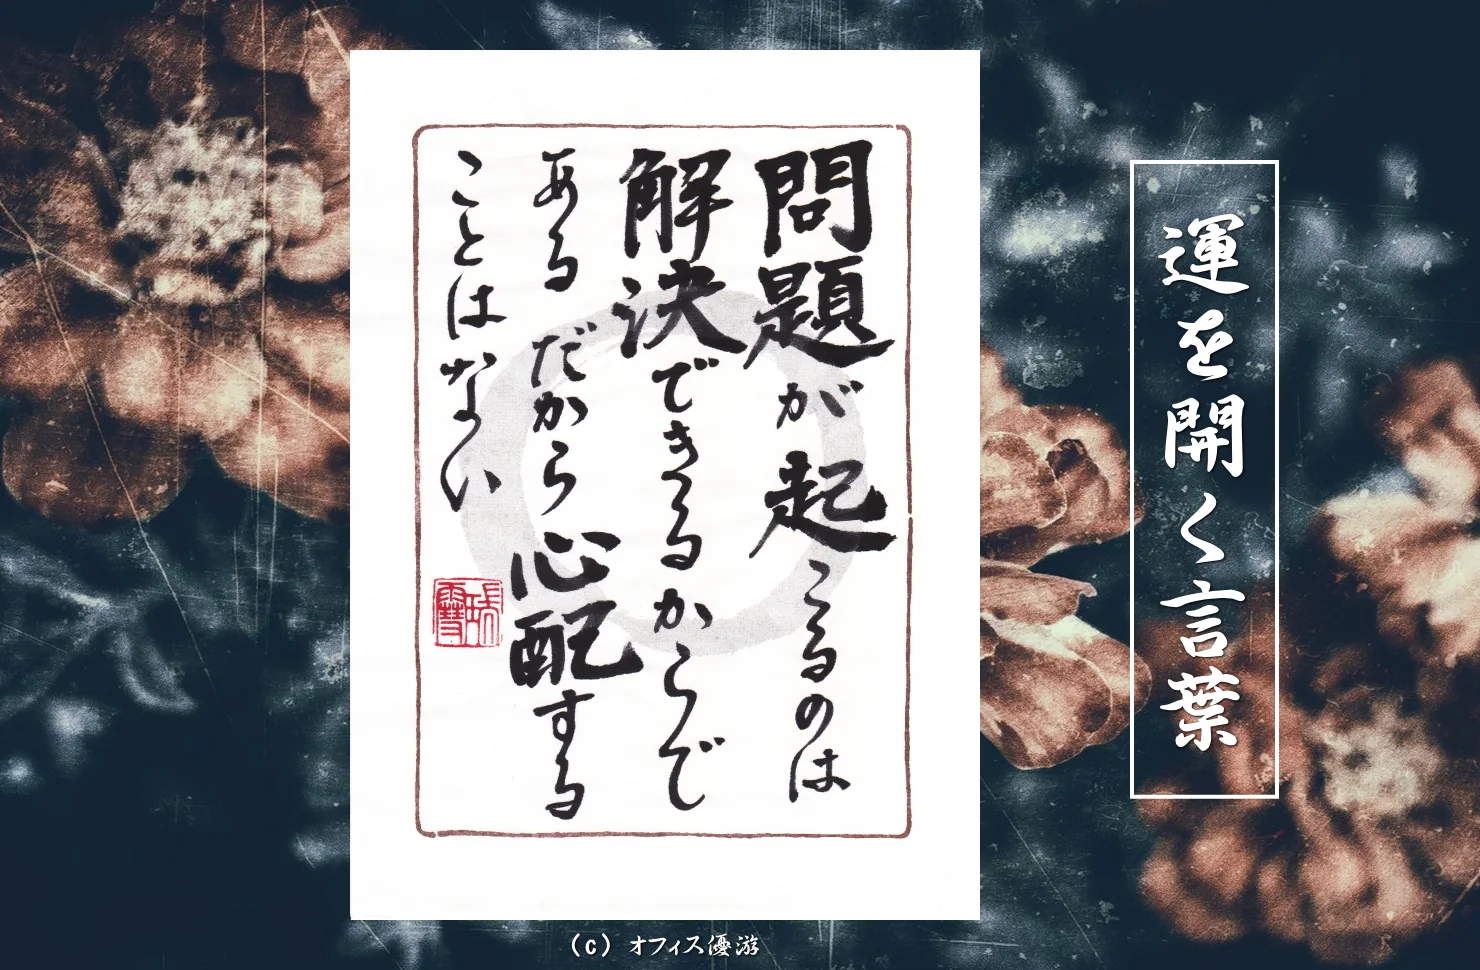 問題が起こるのは
解決できるからで
ある だから心配する
ことはない
運を開く言葉
(c) オフィス優游